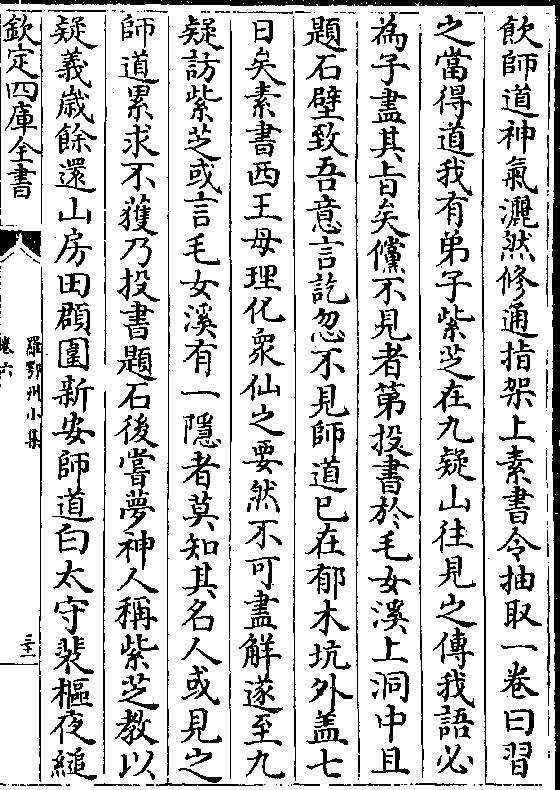 飲師道神氣灑然修通指架上素書令抽取一卷曰習
之當得道我有弟子紫芝在九疑山往見之傳我語必
為子盡其旨矣儻不見者第投書於毛女溪上洞中且
題石壁致吾意言訖忽不見師道已在郁木坑外盖七
日矣素書西王母理化衆仙之要然不可盡解遂至九
疑訪紫芝或言毛女溪有一隱者莫知其名人或見之
師道累求不獲乃投書題石後嘗夢神人稱紫芝教以
疑義嵗餘還山房田頵圍新安師道白太守裴樞夜縋
欽定四庫全書
羅鄂州小集
卷六